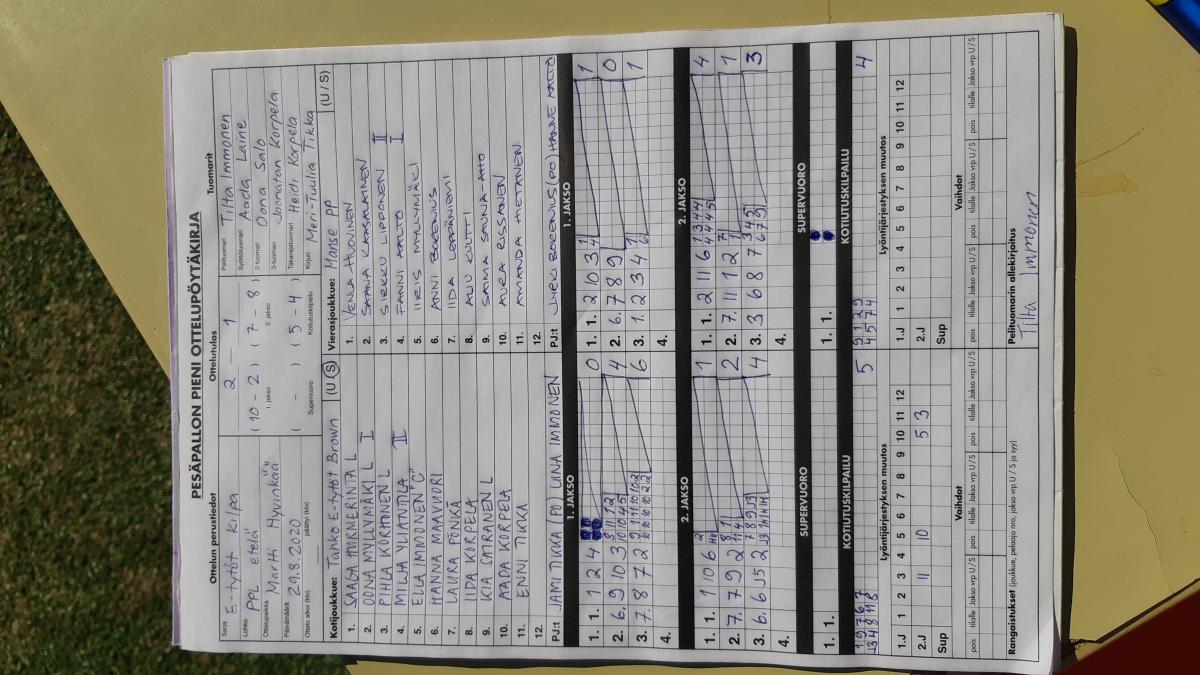 PESÄPALLON PIENI OTTELUPÖYTÄKIRJA
Ottelun perustiedot
Sarja E-tytöt Kilpa
Lohko PPL etelä
Ottelupaikka Martti Hyvinkää
Päivämäärä 29.8.2020
Ottelu alkoi (klo) päättyi (klo)
Ottelutulos
2 - 1
(10 - 2) (7 - 8)
1. jakso 2. jakso
( - ) (5 - 4)
Supervuoro Kotiutuskilpailu
Tuomarit
Pelituomari Tilta Immonen
Syöttötuomari Aada Laine
2-tuomari Oona Salo
3-tuomari Joonatan Korpela
Takarajatuomari Heidi Korpela
Kirjuri Meri-Tuulia Tikka
Kotijoukkue: Tahko E-tytöt Brown (U / S)
1. SAAGA NURMERINTA L
2. OONA MYLLYMÄKI L I
3. PIHLA KORHONEN L
4. MILJA YLIANTTILA II
5. ELLA IMMONEN "C"
6. HANNA MAAVUORI
7. LAURA PÖNKÄ
8. IIDA KORPELA
9. KIA SATRANEN L
10. AADA KORPELA
11. ENNI TIKKA
12.
PJ:t JAMI TIKKA (PO) LIINA IMMONEN
Vierasjoukkue: Manse PP (U / S)
1. VENLA HUOVINEN
2. SAANA KARSIKAINEN
3. SIRKKU LIPPONEN II
4. FANNI AALTO I
5. IIRIS MYLLYMÄKI
6. ANNI BORENIUS
7. IIDA LOPPÄNIEMI
8. ALLI KUUTTI
9. SAIMA SAUNA-AHO
10. AURA RISSANEN
11. AMANDA HIETANEN
12.
PJ:t JYRKI BORENIUS (PO) HANNE AALTO
1. JAKSO 1. JAKSO
1. 1. 1 2 4 0
2. 6. 9 10 3 4
3. 7. 8 7 2 6
4.
1. 1. 2 10 3 1
2. 6. 7 8 9 0
3. 1. 2 3 4 1
4.
2. JAKSO 2. JAKSO
1. 1. 1 10 6 1
2. 7. 7 9 2 2
3. 6. 6 5 2 4
4.
1. 1. 2 11 6 4
2. 7. 11 12 1
3. 3 6 8 7 3
4.
SUPERVUORO SUPERVUORO
1. 1.
1. 1.
KOTIUTUSKILPAILU KOTIUTUSKILPAILU
5
4
Lyöntijärjestyksen muutos
1.J 1 2 3 4 5 6 7 8 9 10 11 12
2.J 11 10 5 3
Sup
Lyöntijärjestyksen muutos
1.J 1 2 3 4 5 6 7 8 9 10 11 12
2.J
Sup
Vaihdot Vaihdot
pois tilalle Jakso vrp U / S pois tilalle Jakso vrp U / S pois tilalle Jakso vrp U / S
pois tilalle Jakso vrp U / S pois tilalle Jakso vrp U / S pois tilalle Jakso vrp U / S
Rangaistukset (joukkue, pelaaja nro, jakso vrp U / S ja syy)
Pelituomarin allekirjoitus
Tilta Immonen